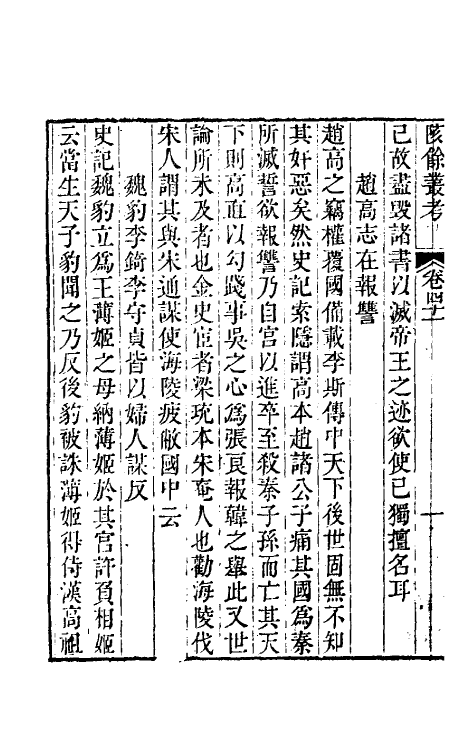 陔餘叢考 卷四十一 一
己故盡毀諸書以滅帝王之迹欲使己獨擅名耳
趙高志在報讐
趙高之竊權覆國備載李斯傳中天下後世固無不知
其奸惡矣然史記索隱謂高本趙諸公子痛其國爲秦
所滅誓欲報讐乃自宮以進卒至殺秦子孫而亡其天
下則高直以勾踐事吳之心爲張良報韓之舉此又世
論所未及者也金史宦者梁珫本宋奄人也勸海陵伐
宋人謂其與宋通謀使海陵疲敝國中云
魏豹李錡李守貞皆以婦人謀反
史記魏豹立爲王薄姬之母納薄姬於其宮許負相姬
云當生天子豹聞之乃反後豹被誅薄姬得侍漢高祖